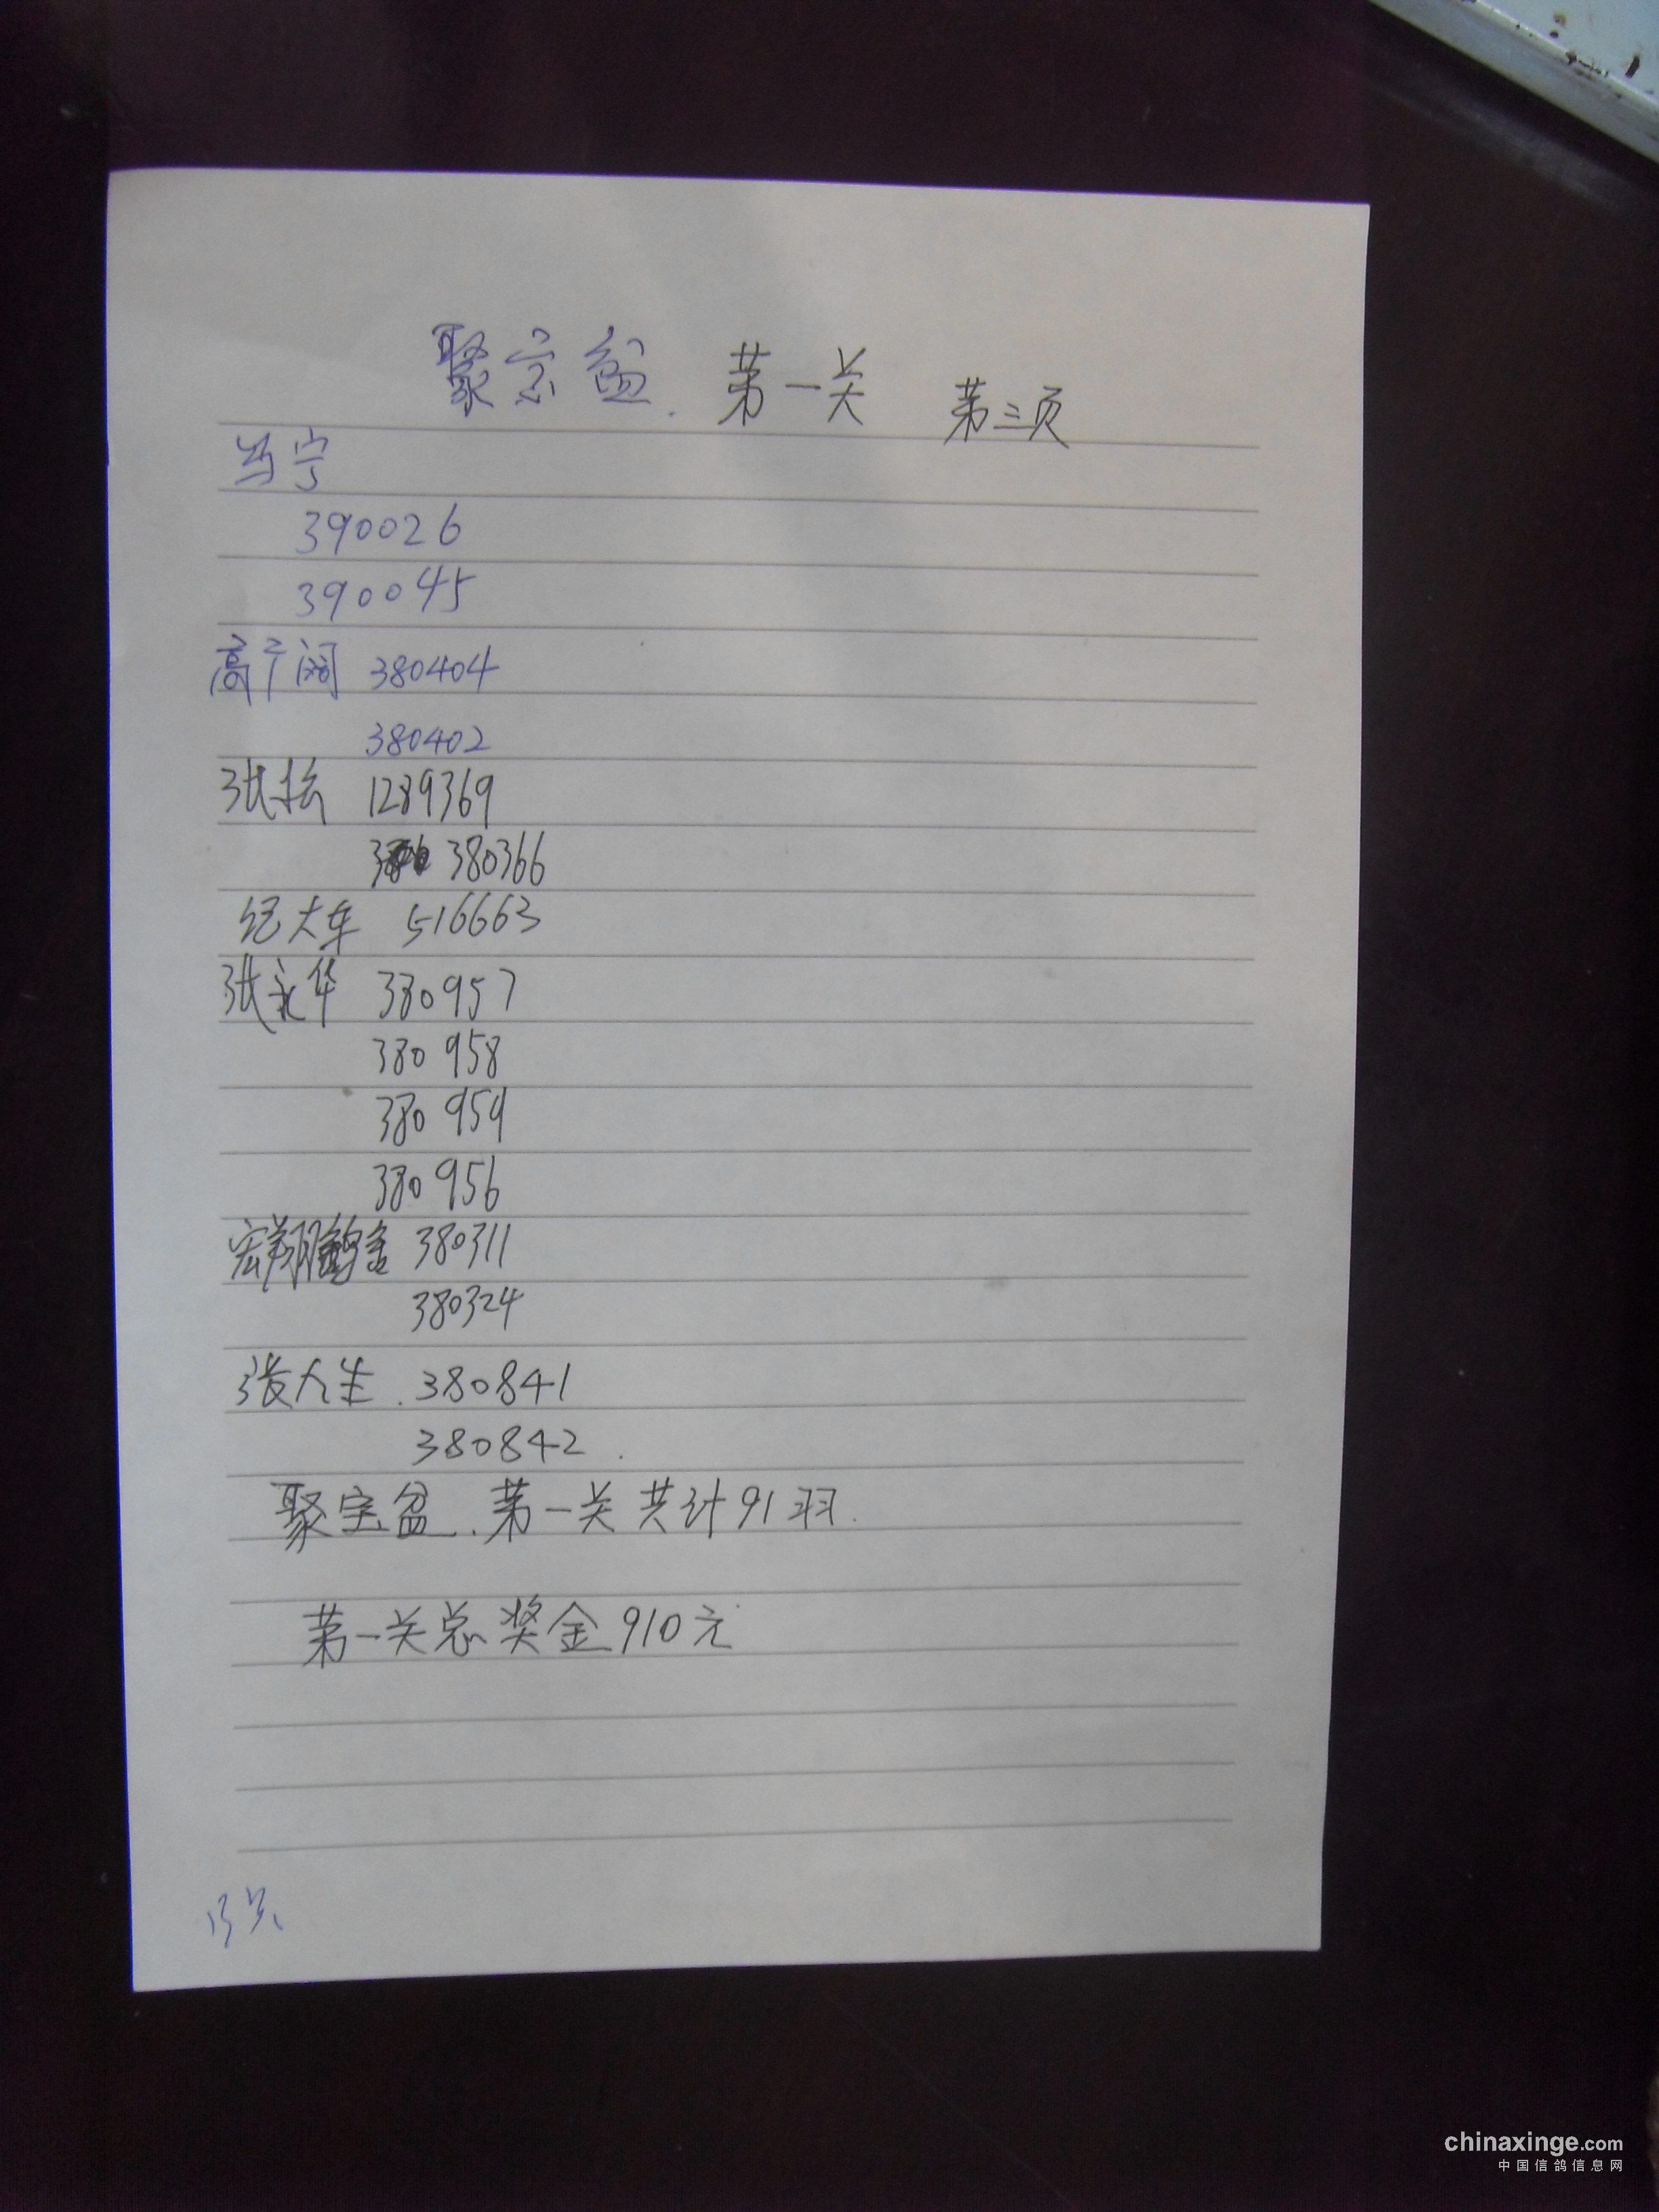 聚宝盆. 第一关 第三页
马宁
390026
390045
高广阔 380404
380402
张松 1289369
380366
纪大车 516663
张永华 380957
380 958
380 959
380 956
宏翔鸽舍 380311
380324
张大生. 380841
380842.
聚宝盆. 第一关共计91羽.
第一关总奖金910元
chinaxinge.com
中国信鸽信息网